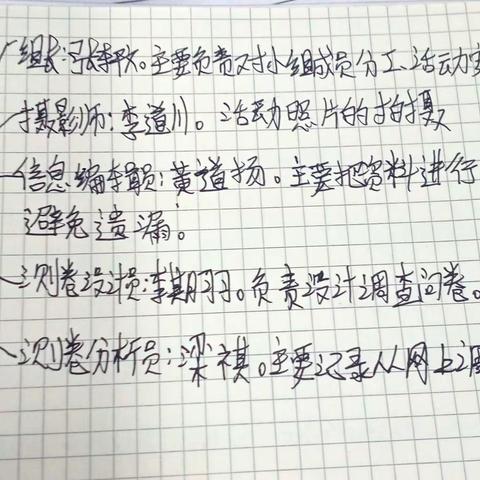 组长:张李牧。主要负责对小组成员分工、活动安
摄影师:李道川。活动照片的拍摄
信息编辑员:黄道扬。主要把资料进行
避免遗漏。
测卷设计员:李期羽。负责设计调查问卷。
测卷分析员:梁祺。主要记录从网上调